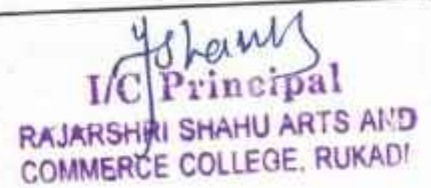 I/C Principal
RAJARSHRI SHAHU ARTS AND
COMMERCE COLLEGE, RUKADI